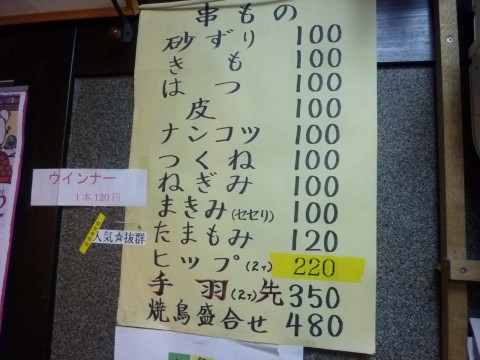 串もの
砂ずり 100
きも 100
はつ 100
皮 100
ナンコツ 100
つくね 100
ねぎみ 100
まきみ(セセリ) 100
たまもみ 120
ヒップ(2ヶ) 220
手羽(2ヶ)先 350
焼鳥盛合せ 480
ウインナー
1本120円
人気☆抜群